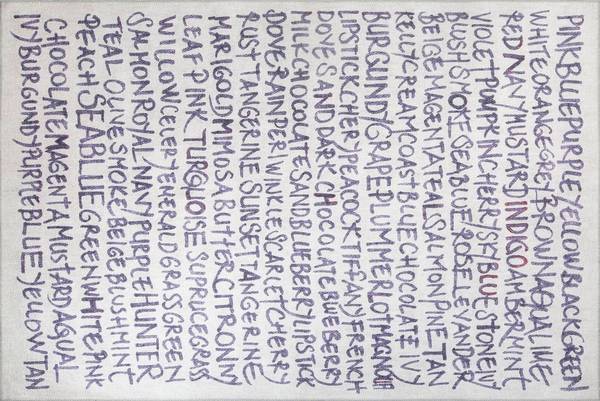 PINKBLUEPURPLEYELLOWBLACKGREEN
WHITEORANGEGREYBROWNAQUALIME
REDNAVYMUSTARDINDIGOAMBERMINT
VIOLETPUMPKINCHERRYSKYBLUESTONEIVY
BLUSHSMOKESEABLUEROSELEVANDER
BEIGEMAGENTATEALSALMONPINETAN
KELLYCREAMCOASTBLUECHOCOLATEIVY
BURGUNDYGRAPEPLUMMERLOTMAGNOLIA
LIPSTICKCHERYPEACOCKTIFFANYFRENCH
DOVESANDDARKCHOCOLATEBLUEBERRY
MILKCHOCOLATESANDBLUEBERRYLIPSTICK
DOVERAINPERWINKLESCARLETCHERRY
RUSTTANGERINESUNSETTANGERINE
MARIGOLDMIMOSABUTTERCITRONNY
LEAFPINKTURQUOISESUPRICEGRASS
WILLOWCELERYEMERALDGRASSGREEN
SALMONROYALNAVYPURPLEHUNTER
TEALOLIVESMOKEBEIGEBLUSHMINT
PEACHSEABLUEGREENWHITEPINK
CHOCOLATEMAGENTAMUSTARDAQUAL
IVYBURGUNDYPURPLEBLUEYELLOWTAN